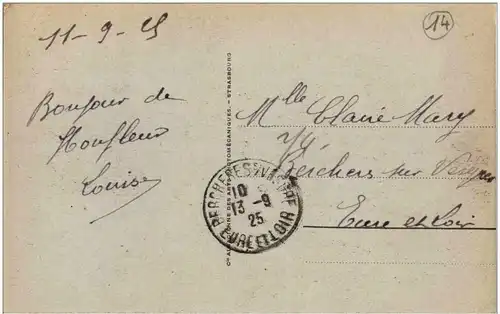 11-9-25
14
Bonjour de
Honfleur
Louise
Cie ALSACIENNE DES ARTS PHOTOMÉCANIQUES. - STRASBOURG
Mlle Claire Mary
Berchers sur Vesgres
Eure et Loir
BERCHERES S/ VESGRE
10
13 -9
25
EURE ET LOIR